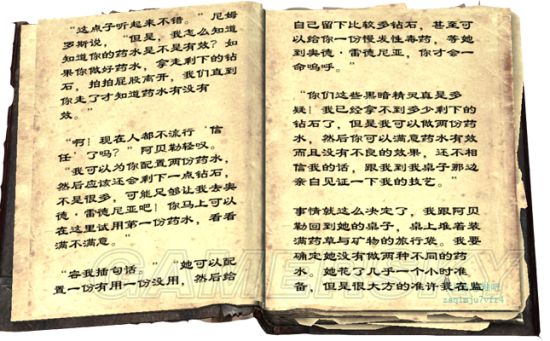 “这点子听起来不错。” 尼姆
罗斯说，“但是，我怎么知道
你的药水是不是有效？如
果你做好药水，拿走剩下的钻
石，拍拍屁股离开，我们直到
你走了才知道药水有没有
效。”
“啊！现在人都不流行‘信
任’了吗？” 阿贝勒轻叹。
“我可以为你配置两份药水，
然后应该还会剩下一点钻石，
不是很多，可能足够让我去奥
德·雷德尼亚吧！你马上可以
在这里试用第一份药水，看看
满不满意。”
“容我插句话。” “她可以配
置一份有用一份没用，然后给
自己留下比较多钻石，甚至可
以给你一份慢发性毒药，等她
到奥德·雷德尼亚，你才会一
命呜呼。”
“你们这些黑暗精灵真是多
疑！我已经拿不到多少剩下的
钻石了，但是我可以做两份药
水，然后你可以满意药水有效
而且没有不良的效果，还不相
信我的话，跟我到我桌子那边
亲自见证一下我的技艺。”
事情就这么决定了，我跟阿贝
勒回到她的桌子，桌上堆着装
满药草与矿物的旅行袋。我要
确定她没有做两种不同的药
水。她花了几乎一个小时准
备，但是很大方的准许我在监
GAMERSKY
zaqimju7vfr4